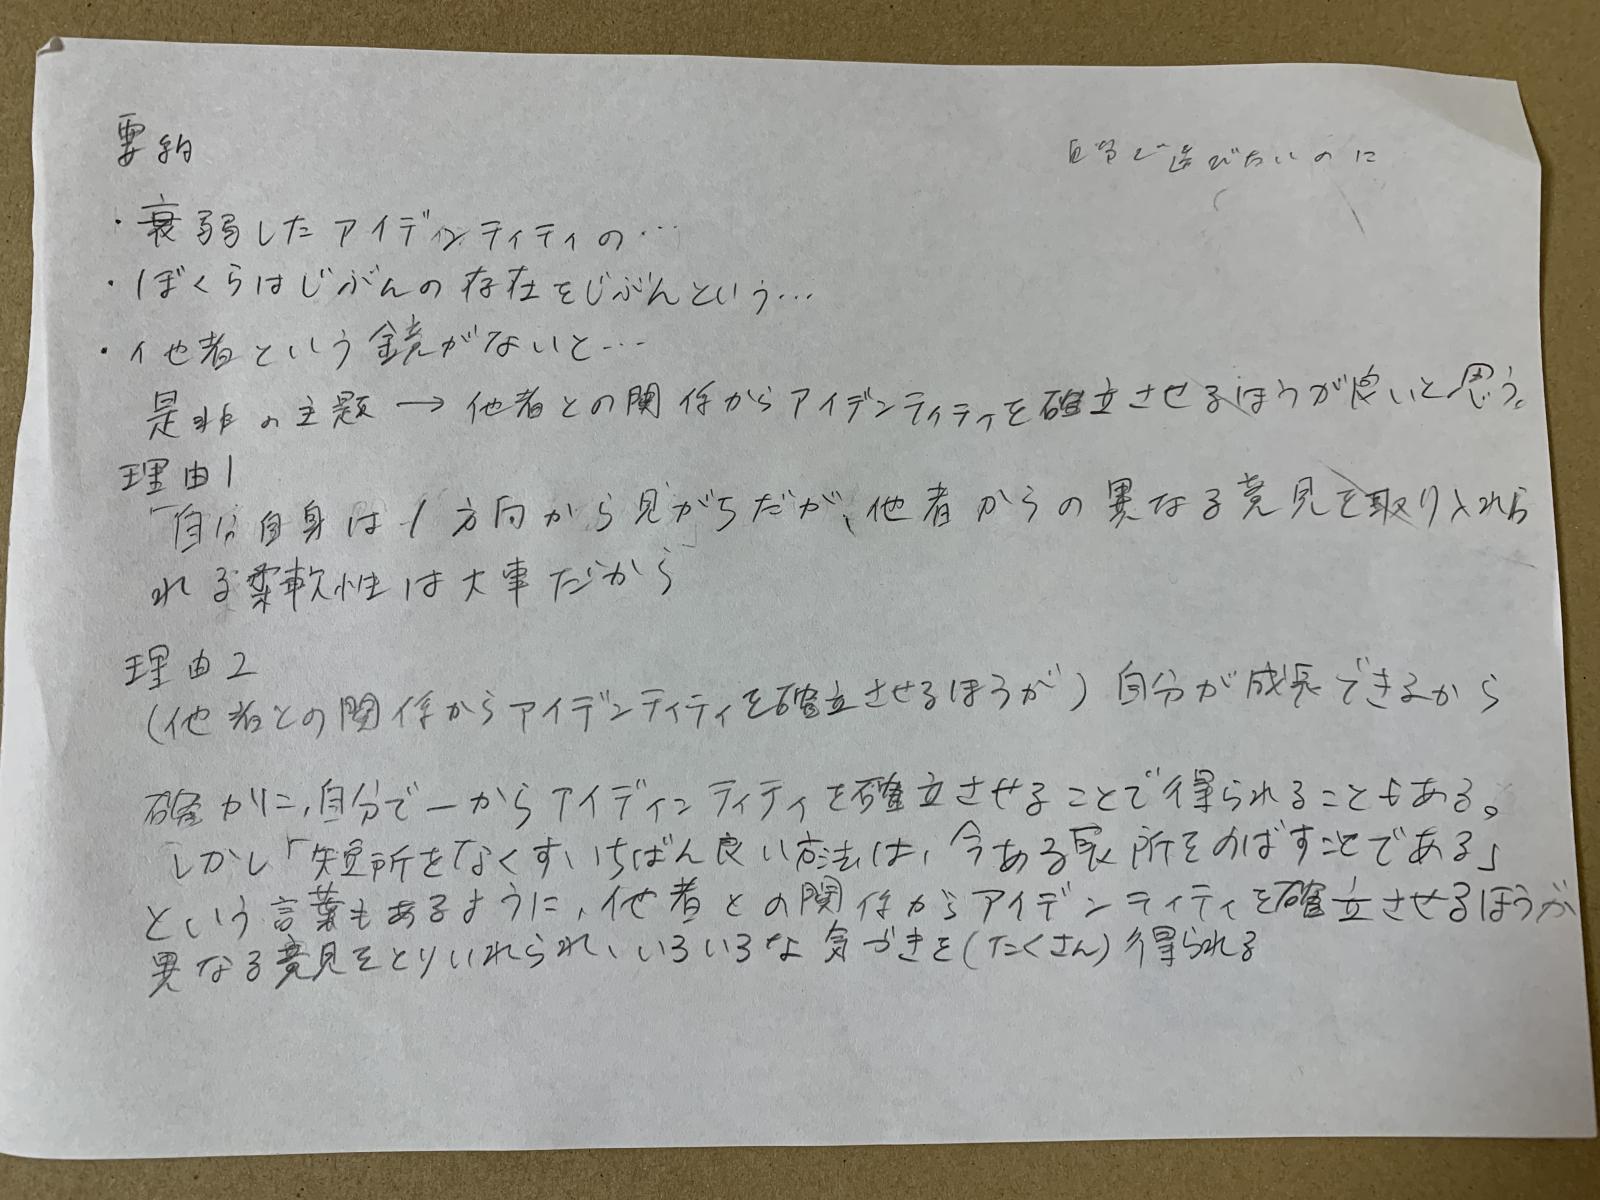 要約
自分で選びたいのに
・衰弱したアイデンティティの…
・ぼくらはじぶんの存在をじぶんという…
・他者という鏡がないと…
是非の主題→他者との関係からアイデンティティを確立させるほうが良いと思う。
理由1
「自分自身は1方向から見がちだが、他者からの異なる意見を取り入れら
れる柔軟性は大事だから
理由2
(他者との関係からアイデンティティを確立させるほうが)自分が成長できるから
確かに、自分で一からアイディンティティを確立させることで得られることもある。
しかし「短所をなくすいちばん良い方法は、今ある長所をのばすことである」
という言葉もあるように、他者との関係からアイデンティティを確立させるほうが
異なる意見をとりいれられ、いろいろな気づきを(たくさん)得られる